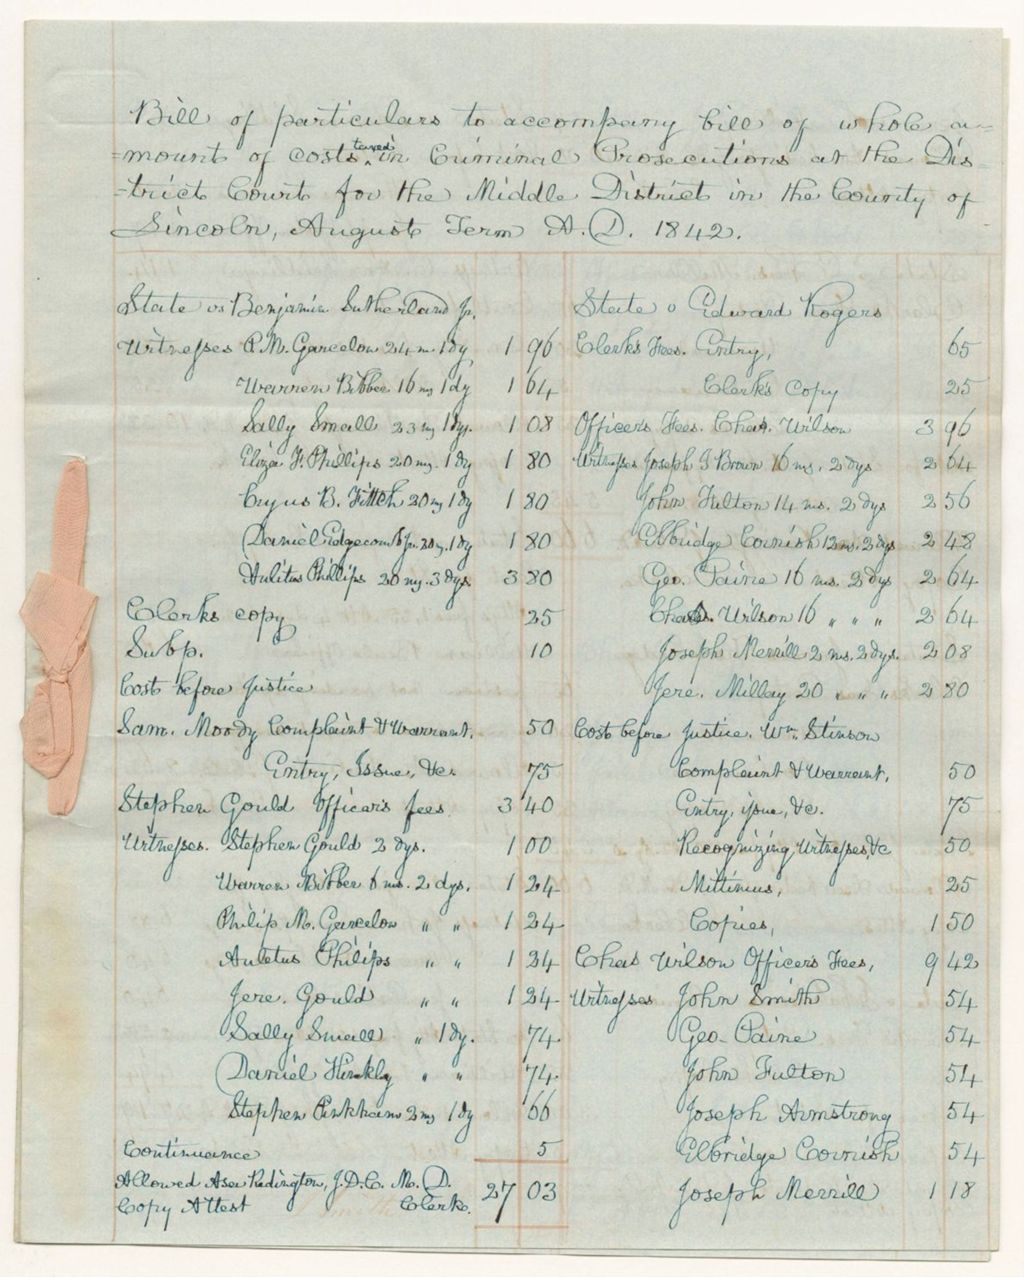 Bill of particulars to accompany bill of whole a=
=mount of costs taxed in Criminal Prosecutions at the Dis=
=trict Court for the Middle District in the County of
Lincoln, August Term A.D. 1842.
State vs Benjamin Sutherland Jr.
Witnesses P.M. Garcelon 24 m 1 dy 1 96
Warren Bibber 16 ms 1 dy 1 64
Sally Small 23 ms 1 dy. 1 08
Eliza F. Phillips 20 ms. 1 dy 1 80
Cryus B. Fittch 20 ms 1 dy 1 80
Daniel Edgecomb Jr. 20 ms. 1 dy 1 80
Aulitus Phillips 20 ms. 3 dys. 3 80
Clerks copy 25
Subp. 10
Cost before Justice
Sam. Moody Complaint & Warrant. 50
Entry, Issue, &c. 75
Stephen Gould Officers fees. 3 40
Witnesses. Stephen Gould 2 dys. 1 00
Warren Bibber 6 ms. 2 dys. 1 24
Philip M. Garcelon " " 1 24
Auletus Philips " " 1 24
Jere. Gould " " 1 24
Sally Small " 1 dy. 74
Daniel Hinkly " " 74
Stephen Pinkham 2 ms 1 dy 66
Continuance 5
Allowed Asa Redington, J.D.C. M.D. 27 03
Copy Attest Clerk.
State v Edward Rogers
Clerks Fees. Entry, 65
Clerks copy 25
Officers Fees. Chas. Wilson 3 96
Witnesses Joseph G Brown 16 ms. 2 dys 2 64
John Fulton 14 ms. 2 dys 2 56
Elbridge Cornish 12 ms. 2 dys 2 48
Geo. Paine 16 ms. 2 dys 2 64
Chas. Wilson 16 " " " 2 64
Joseph Merrill 2 ms. 2 dys. 2 08
Jere. Millay 20 " " " 2 80
Cost before Justice. Wm. Stinson
Complaint & Warrant, 50
Entry, issue, &c. 75
Recognizing Witnesses, &c 50
Mittimus, 25
Copies, 1 50
Chas Wilson Officers Fees, 9 42
Witnesses John Smith 54
Geo. Paine 54
John Fulton 54
Joseph Armstrong 54
Elbridge Cornish 54
Joseph Merrill 1 18